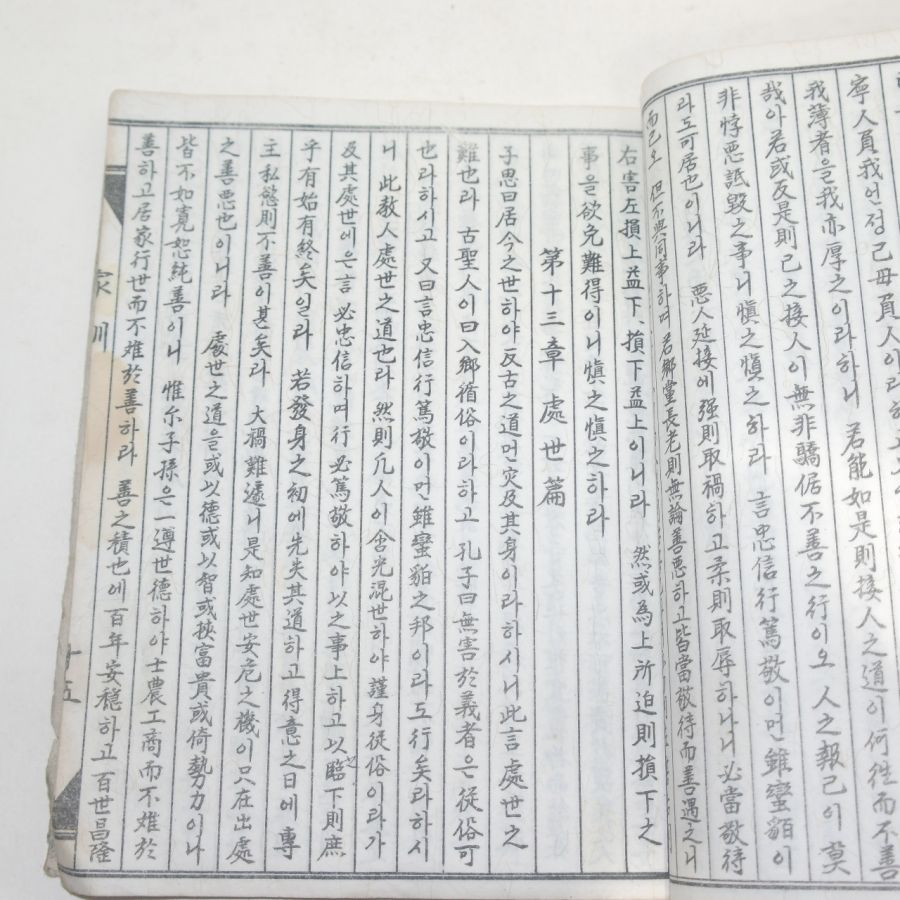 寧人負我언정己毋負人이라하고
我薄者을我亦厚之이라하니 若能如是則接人之道이何往而不善
哉아若或反是則己之接人이無非驕倨不善之行이오 人之報己이莫
非悖惡詆毀之事니愼之愼之하라 言忠信行篤敬이면雖蠻貊이
라도可居也이니라 惡人延接에强則取禍하고柔則取辱하나니必當敬待
而已오 但不與同事하며 若鄕黨長老則無論善惡하고皆當敬待而善遇之니
右害左損上益下、損下益上이니라 然或爲上所迫則損下之
事을欲免難得이니愼之愼之하라
第十三章 處世篇
子思曰居今之世하야反古之道면灾及其身이라하시니此言處世之
難也라 古聖人이曰入鄕循俗이라하고 孔子曰無害於義者은從俗可
也라하시고 又曰言忠信行篤敬이면雖蠻貊之邦이라도行矣라하시
니 此敎人處世之道也라 然則凡人이含光混世하야謹身從俗이라가
及其處世에은言必忠信하며行必篤敬하야以之事上하고以之臨下則庶
乎有始有終矣일라 若發身之初에先失其道하고得意之日에專
主私慾則不善이甚矣라 大禍難遠니是知處世安危之機이只在出處
之善惡也이니라 處世之道을或以德或以智或挾富貴或倚勢力이나
皆不如寬恕純善이니 惟尒子孫은一遵世德하야士農工商而不难於
善하고居家行世而不难於善하라 善之積也에百年安穩하고百世昌隆
家訓
十五